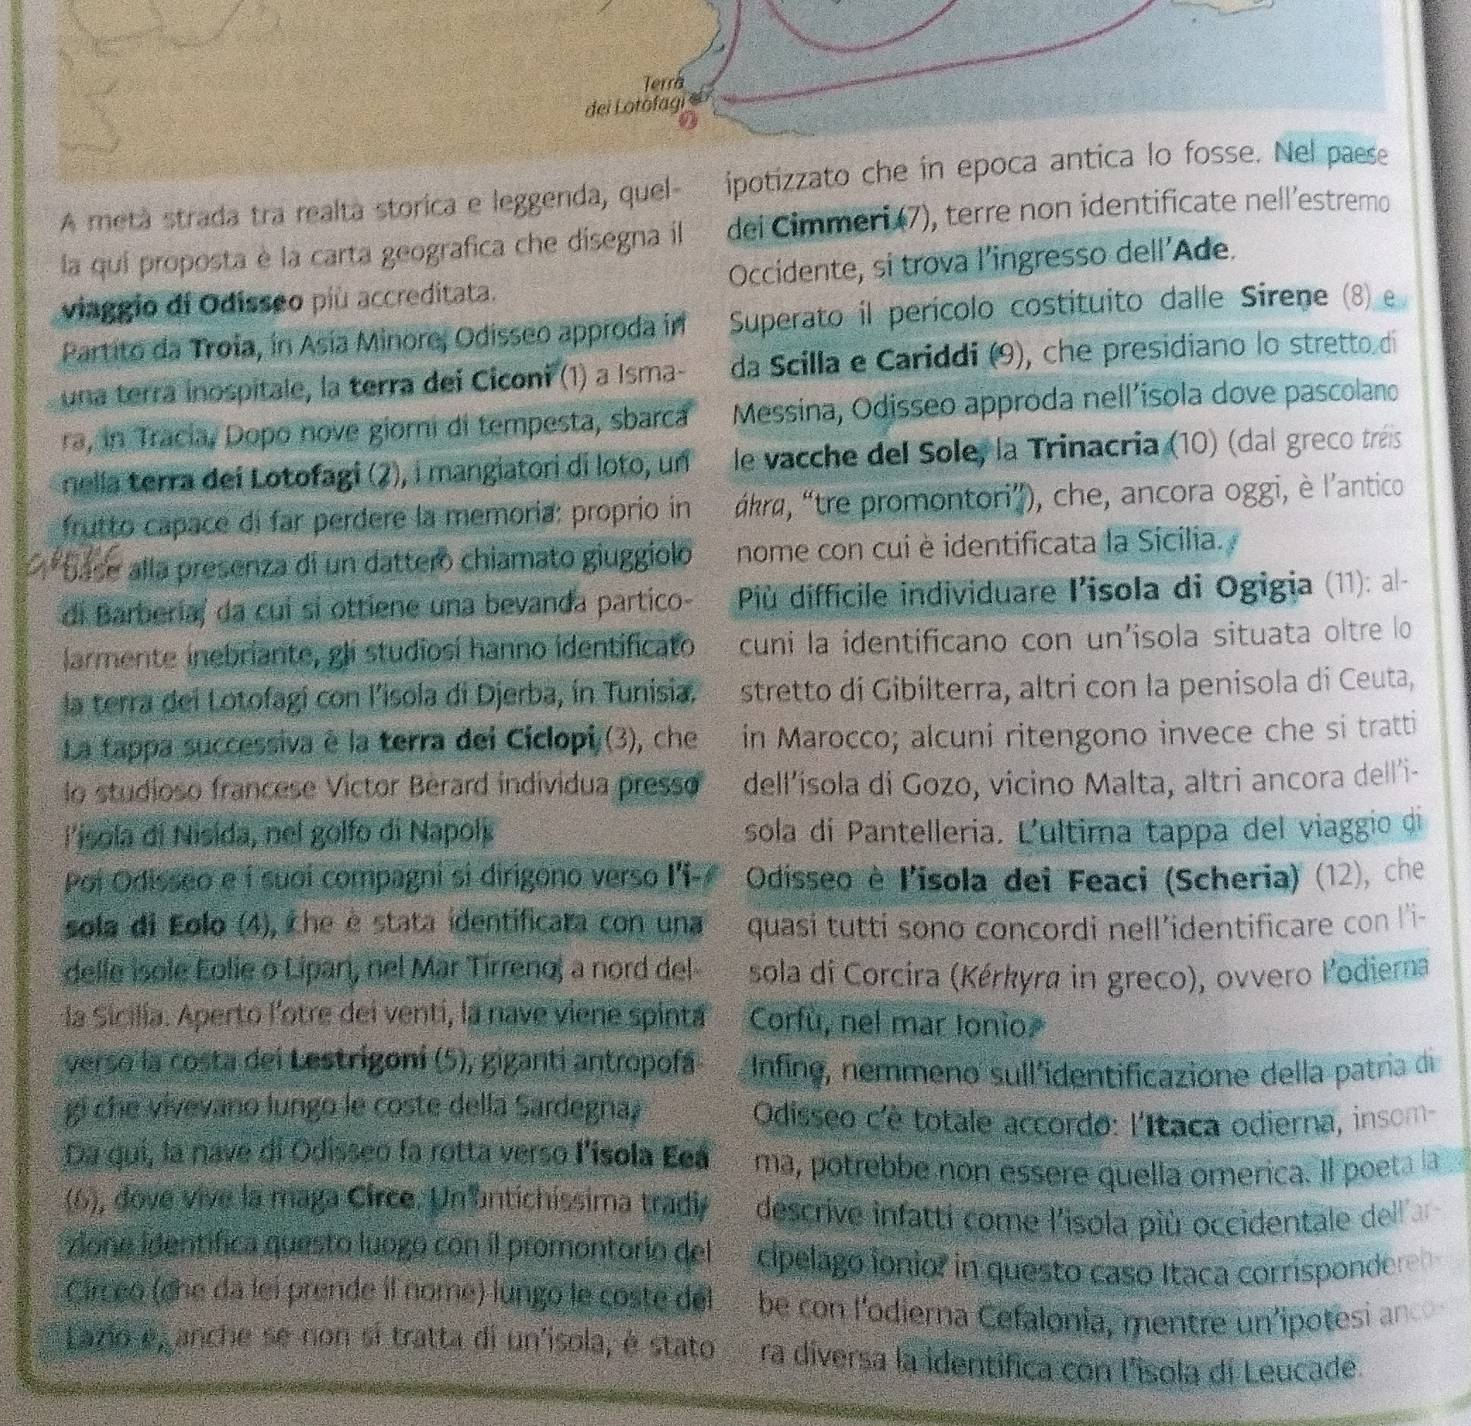 Terra
dei Lotofagi
2
A metà strada tra realtà storica e leggenda, quel-
la qui proposta è la carta geografica che disegna il
viaggio di Odisseo più accreditata.
Partito da Troia, in Asia Minore, Odisseo approda in
una terra inospitale, la terra dei Ciconi (1) a Isma-
ra, in Tracia. Dopo nove giorni di tempesta, sbarca
nella terra dei Lotofagi (2), i mangiatori di loto, un
frutto capace di far perdere la memoria: proprio in
base alla presenza di un dattero chiamato giuggiolo
di Barberia, da cui si ottiene una bevanda partico-
larmente inebriante, gli studiosi hanno identificato
la terra dei Lotofagi con l'isola di Djerba, in Tunisia.
La tappa successiva è la terra dei Ciclopi (3), che
lo studioso francese Victor Bérard individua presso
l'isola di Nisida, nel golfo di Napoli.
Poi Odisseo e i suoi compagni si dirigono verso l'i-
sola di Eolo (4), che è stata identificata con una
delle isole Eolie o Lipari, nel Mar Tirreno, a nord del-
la Sicilia. Aperto l'otre dei venti, la nave viene spinta
verso la costa dei Lestrigoni (5), giganti antropofa-
gi che vivevano lungo le coste della Sardegna.
Da qui, la nave di Odisseo fa rotta verso l'isola Eea
(6), dove vive la maga Circe. Un'antichissima tradi-
zione identifica questo luogo con il promontorio del
Circeo (che da lei prende il nome) lungo le coste del
Lazio e, anche se non si tratta di un'isola, è stato
ipotizzato che in epoca antica lo fosse. Nel paese
dei Cimmeri (7), terre non identificate nell'estremo
Occidente, si trova l'ingresso dell'Ade.
Superato il pericolo costituito dalle Sirene (8) e
da Scilla e Cariddi (9), che presidiano lo stretto di
Messina, Odisseo approda nell'isola dove pascolano
le vacche del Sole, la Trinacria (10) (dal greco tréis
ákra, "tre promontori"), che, ancora oggi, è l'antico
nome con cui è identificata la Sicilia.
Più difficile individuare l'isola di Ogigia (11): al-
cuni la identificano con un'isola situata oltre lo
stretto di Gibilterra, altri con la penisola di Ceuta,
in Marocco; alcuni ritengono invece che si tratti
dell'isola di Gozo, vicino Malta, altri ancora dell'i-
sola di Pantelleria. L'ultima tappa del viaggio di
Odisseo è l'isola dei Feaci (Scheria) (12), che
quasi tutti sono concordi nell'identificare con l'i-
sola di Corcira (Kérkyra in greco), ovvero l'odierna
Corfù, nel mar Ionio.
Infine, nemmeno sull'identificazione della patria di
Odisseo c'è totale accordo: l'Itaca odierna, insom-
ma, potrebbe non essere quella omerica. Il poeta la
descrive infatti come l'isola più occidentale dell'ar-
cipelago ionio: in questo caso Itaca corrispondereb-
be con l'odierna Cefalonia, mentre un'ipotesi anco-
ra diversa la identifica con l'isola di Leucade.